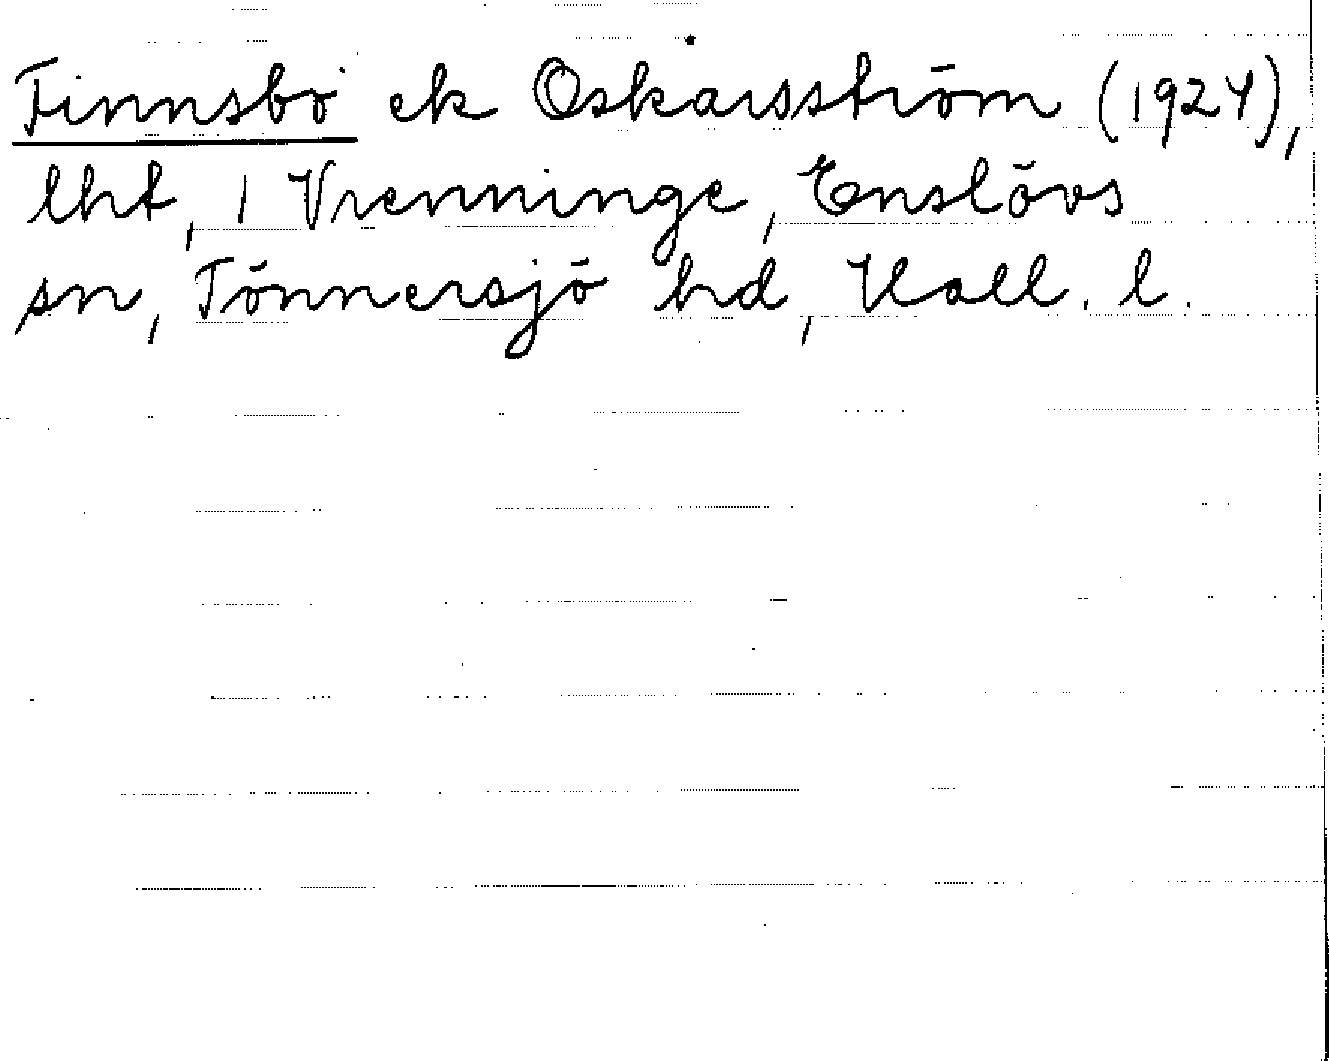 Finnsbo ek Oskarsström (1924),
lht, 1 Vrenninge, Enslövs
sn, Tönnersjö hd, Hall. l.